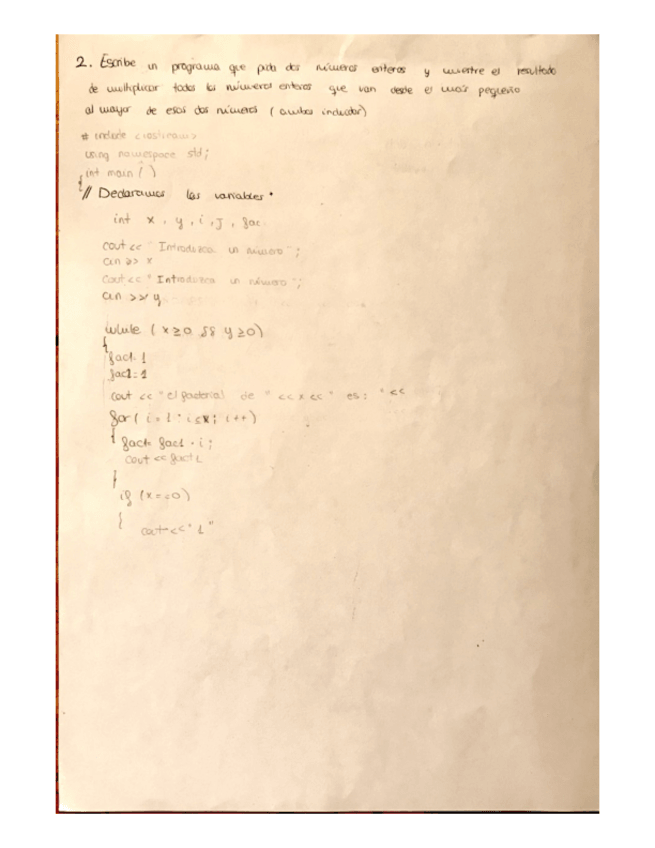 2. Escribe un programa que pida dos números enteros y muestre el resultado
de multiplicar todos los números enteros que van desde el más pequeño
al mayor de esos dos números (ambos incluidos)
# include <iostream>
using namespace std;
int main ( )
{
// Declaramos las variables
int x, y, i, j, fac
cout << " Introduzca un número ";
cin >> x
cout << " Introduzca un número ";
cin >> y
while ( x ≥ 0 && y ≥ 0)
{
fact 1
fac2 = 1
cout << " el factorial de " << x << " es: " <<
for ( i = 1 ; i ≤ x ; i ++)
{ fact fact1 · i;
cout << fact1
}
if (x == 0)
{
cout << " 1 "